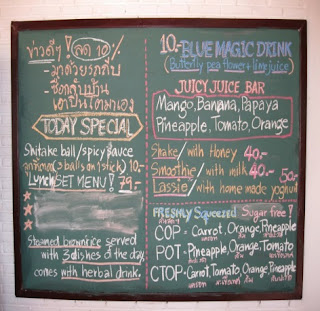 ข่าวดีๆ! ลด 10%
- มาด้วยรถถีบ
TODAY SPECIAL
Shitake ball/spicy sauce
(3 balls on 1 stick) 10.-
Lunch SET MENU! 79.-
Steamed brownrice served
with 3 dishes of the day,
comes with herbal drink.
10.- BLUE MAGIC DRINK
(Butterfly pea flower + lime juice)
JUICY JUICE BAR
Mango, Banana, Papaya
Pineapple, Tomato, Orange
Shake/with Honey 40.-
Smoothie/with milk 40.-
Lassie/with home made yoghurt 50.-
FRESHLY Squeezed Sugar free!
COP = Carrot, Orange, Pineapple
POT = Pineapple, Orange, Tomato
CTOP = Carrot, Tomato, Orange, Pineapple